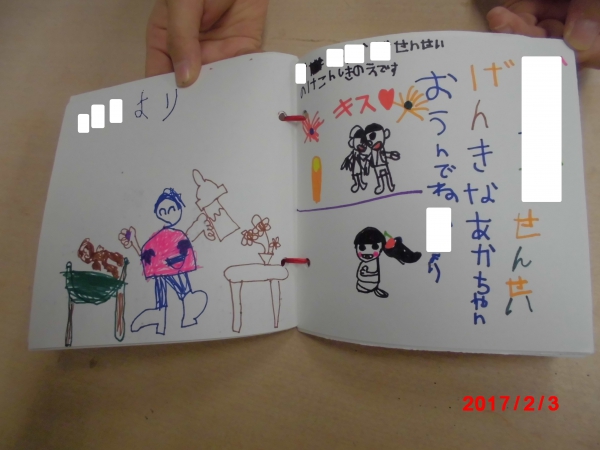 より
せんせい
のけこんしきのえです
キス♥
げんきなあかちゃん
おうんでね
より
せんせい
2017/2/3